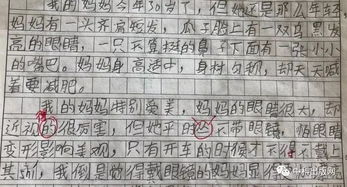 我的妈妈今年30岁了,但她还是那么年轻,
妈妈有一头齐肩短发,瓜子脸上有一双乌黑发
亮的眼睛,一只不算挺的鼻子下面有一张小小
的嘴巴。妈妈身高适中,身材匀称,却天天喊
着要减肥。
我的妈妈特别爱美,妈妈的眼睛很大,却
近视的很厉害,但她平时从不带眼镜,怕眼睛
变形影响美观,只有开车的时候才不得不戴上
其实,我倒是觉得戴眼镜的妈妈显得
中科出版网